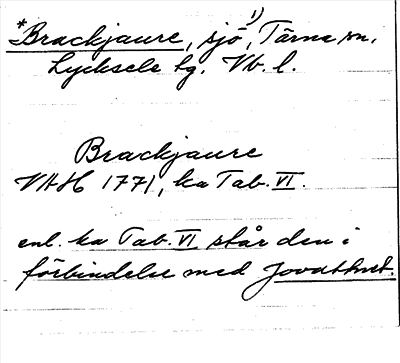 *Brackjaure, sjö, 1) Tärna sn.
Lycksele lg. Vb. l.
Brackjaure
VAH 1771, ka Tab. VI.
enl. ka Tab. VI står den i
förbindelse med